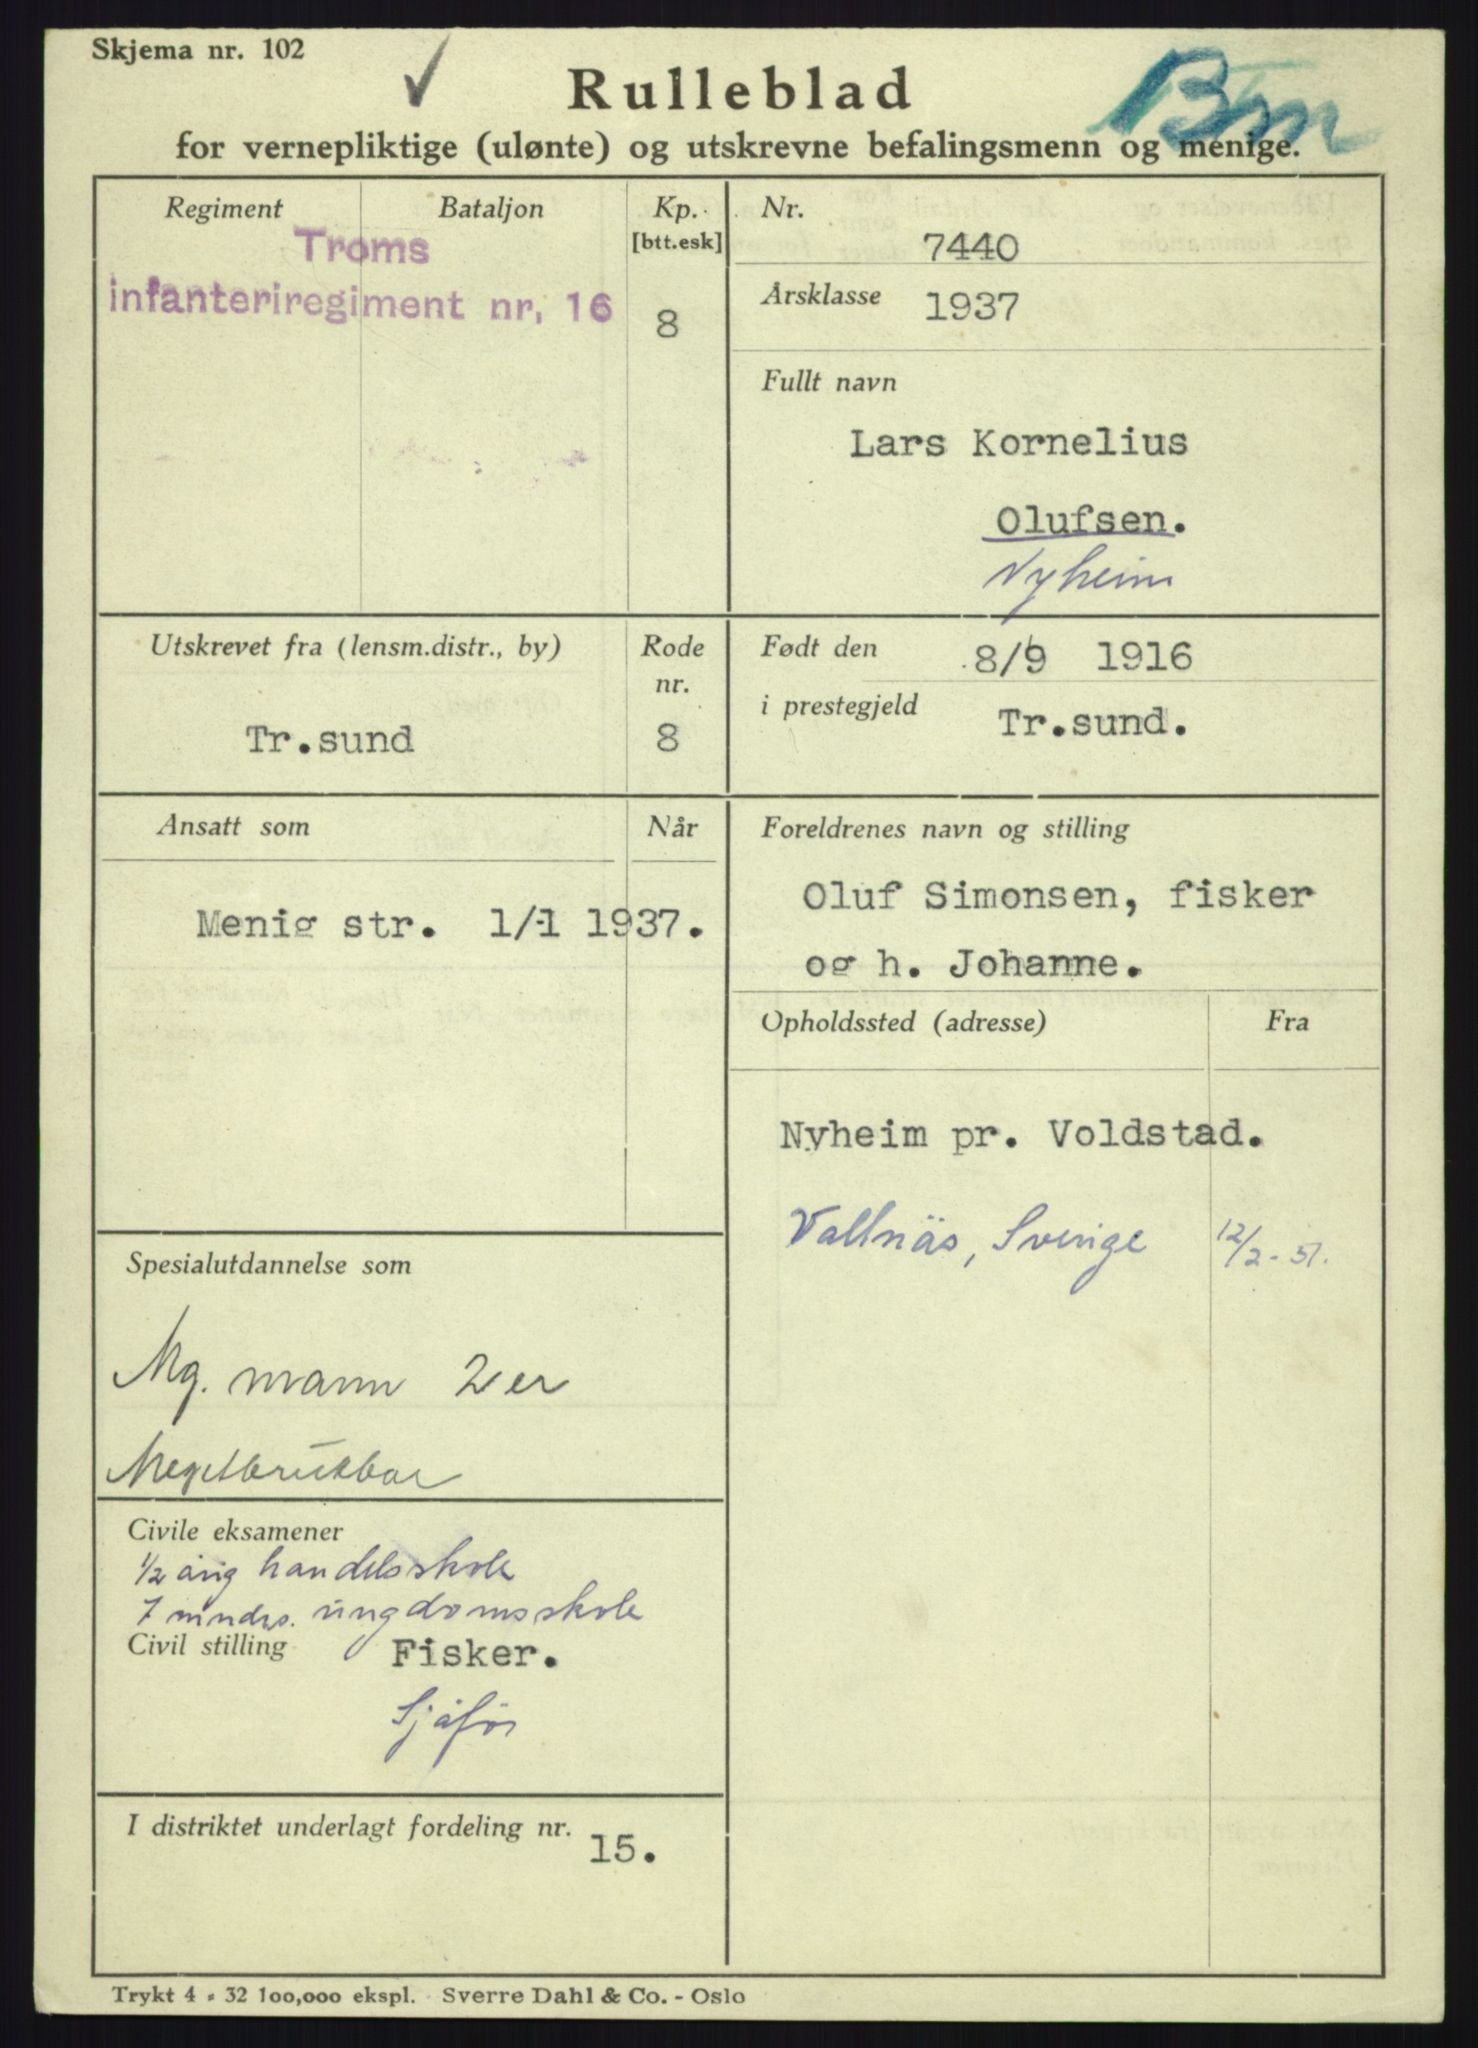 Skjema nr. 102
Rulleblad
Bm
for vernepliktige (ulønte) og utskrevne befalingsmenn og menige.
Regiment Bataljon Kp. [btt.esk]
Troms
infanteriregiment nr, 16
8
Nr.
7440
Årsklasse 1937
Fullt navn
Lars Kornelius
Olufsen.
Nyheim
Utskrevet fra (lensm.distr., by) Rode nr.
Tr.sund 8
Født den 8/9 1916
i prestegjeld Tr.sund.
Ansatt som Når
Menig str. 1/-1 1937.
Foreldrenes navn og stilling
Oluf Simonsen, fisker
og h. Johanne.
Opholdssted (adresse) Fra
Nyheim pr. Voldstad.
Vallnäs, Sverige 12/2-51.
Spesialutdannelse som
Mg. mann 2er
Megetbrukbar
Civile eksamener
1/2 årig handelsskole
7 mndrs. ungdomsskole
Civil stilling Fisker.
Sjåfør
I distriktet underlagt fordeling nr. 15.
Trykt 4 - 32 100,000 ekspl. Sverre Dahl & Co. - Oslo